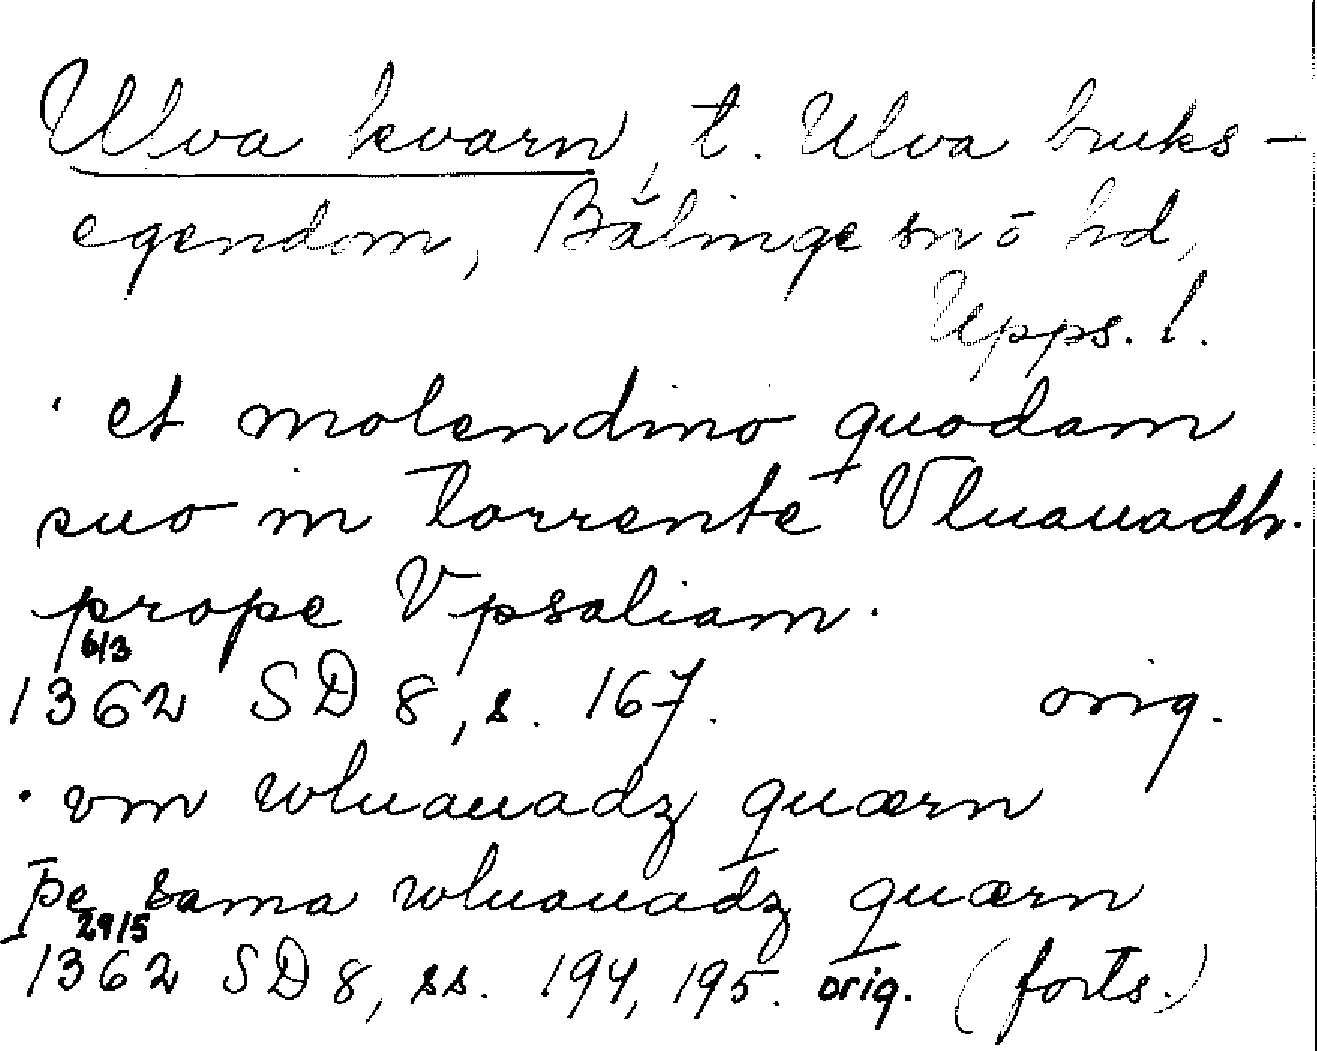 Ulva kvarn, t. Ulva bruks-
egendom, Bälinge sn o hd,
Upps. l.
· et molendino quodam
suo in torrente Vluauadh.
prope Vpsaliam.
6/3
1362 SD 8, s. 167. orig.
· vm wluauadz quærn
þe sama wluauadz quærn
29/5
1362 SD 8, ss. 194, 195. orig. (forts.)